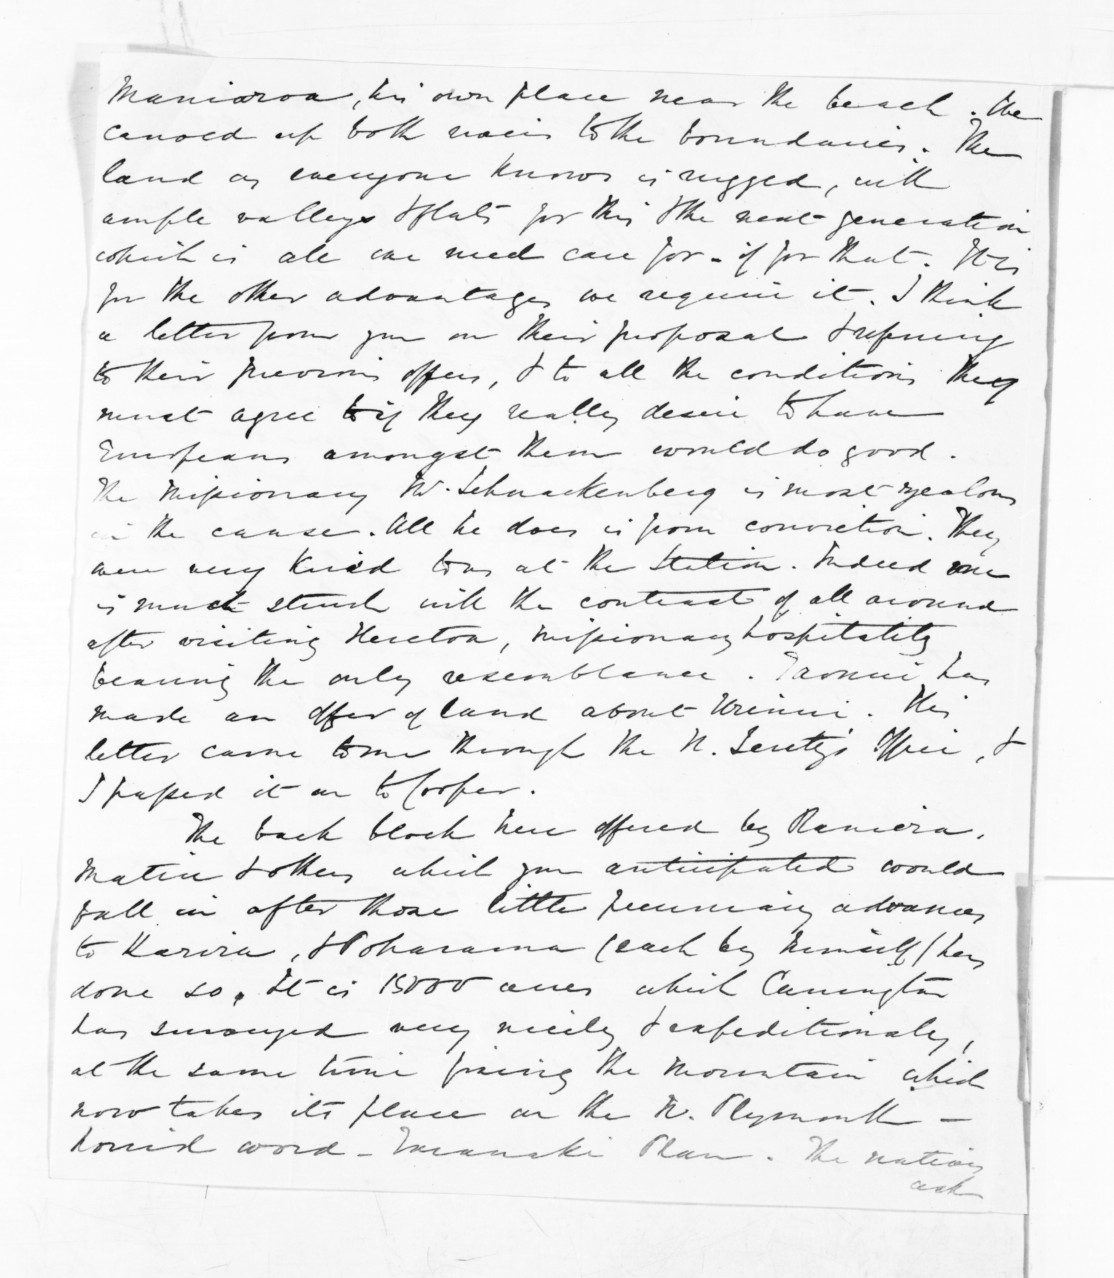 Maniaroa, his own place near the beach. We
canoed up both rivers to the boundaries. The
land as everyone knows is rugged, with
ample valleys & flats for this & the next generation
which is all we need care for - if for that. It is
for the other advantages we require it. I think
a letter from you on their proposal & refering
to their previous offers, & to all the conditions they
must agree to if they really desire to have
Europeans amongst them would do good.
The Missionary Mr. Schnackenberg is most zealous
in the cause. All he does is from conviction. They
were very kind to us at the Station. Indeed one
is much struck with the contrast of all around
after visiting Heretoa, missionary hospitality
bearing the only resemblance. Taonui has
made an offer of land about Urinui. His
letter came to me through the N. Secty's Office, &
I passed it on to Cooper.
The back block here offered by Raniera,
Matiu & others which you anticipated would
fall in after those little pecuniary advances
to Karira, & Poharama (each by himself) has
done so. It is 15000 acres which Carrington
has surveyed very nicely & expeditiously,
at the same time fixing the Mountain which
now takes its place on the N. Plymouth -
horrid word - Taranaki Plan. The natives
ask